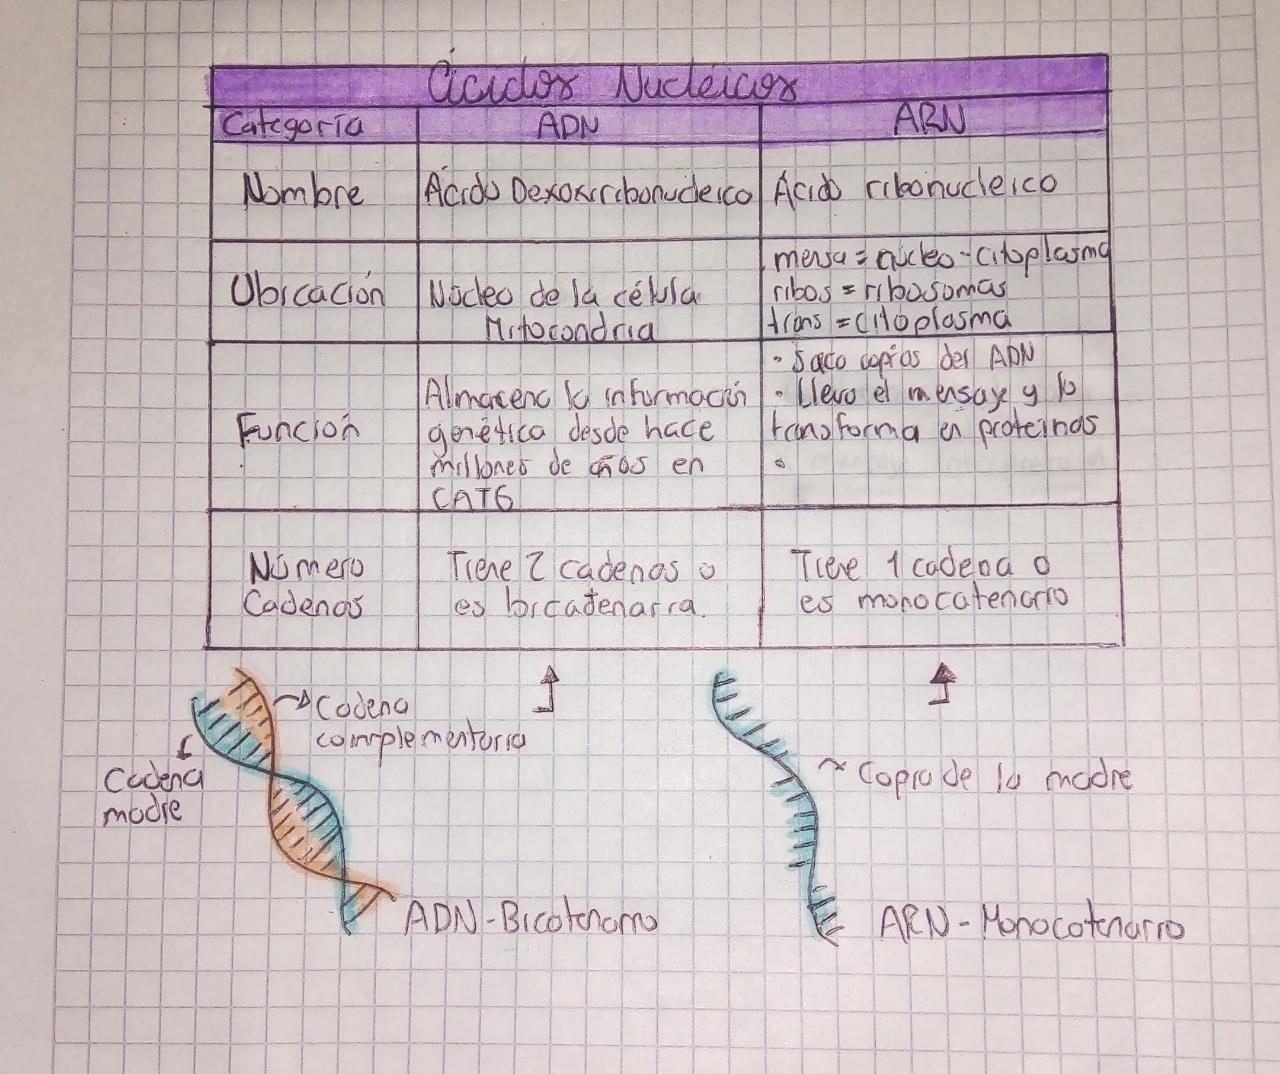 Ácidos Nucléicos
Categoría ADN ARN
Nombre Ácido Dexoxirribonucleico Ácido ribonucleico
Ubicación
Núcleo de la célula
Mitocondria
mensa = núcleo-citoplasma
ribos = ribosomas
trans = citoplasma
Función
Almacena la información
genética desde hace
millones de años en
CATG
• Saca copias del ADN
• Lleva el mensaje y lo
transforma en proteinas
Número
Cadenas
Tiene 2 cadenas o
es bicatenarra.
Tiene 1 cadena o
es monocatenario
Cadena
complementaria
Cadena
madre
Copia de la madre
ADN-Bicatenario
ARN-Monocatenario